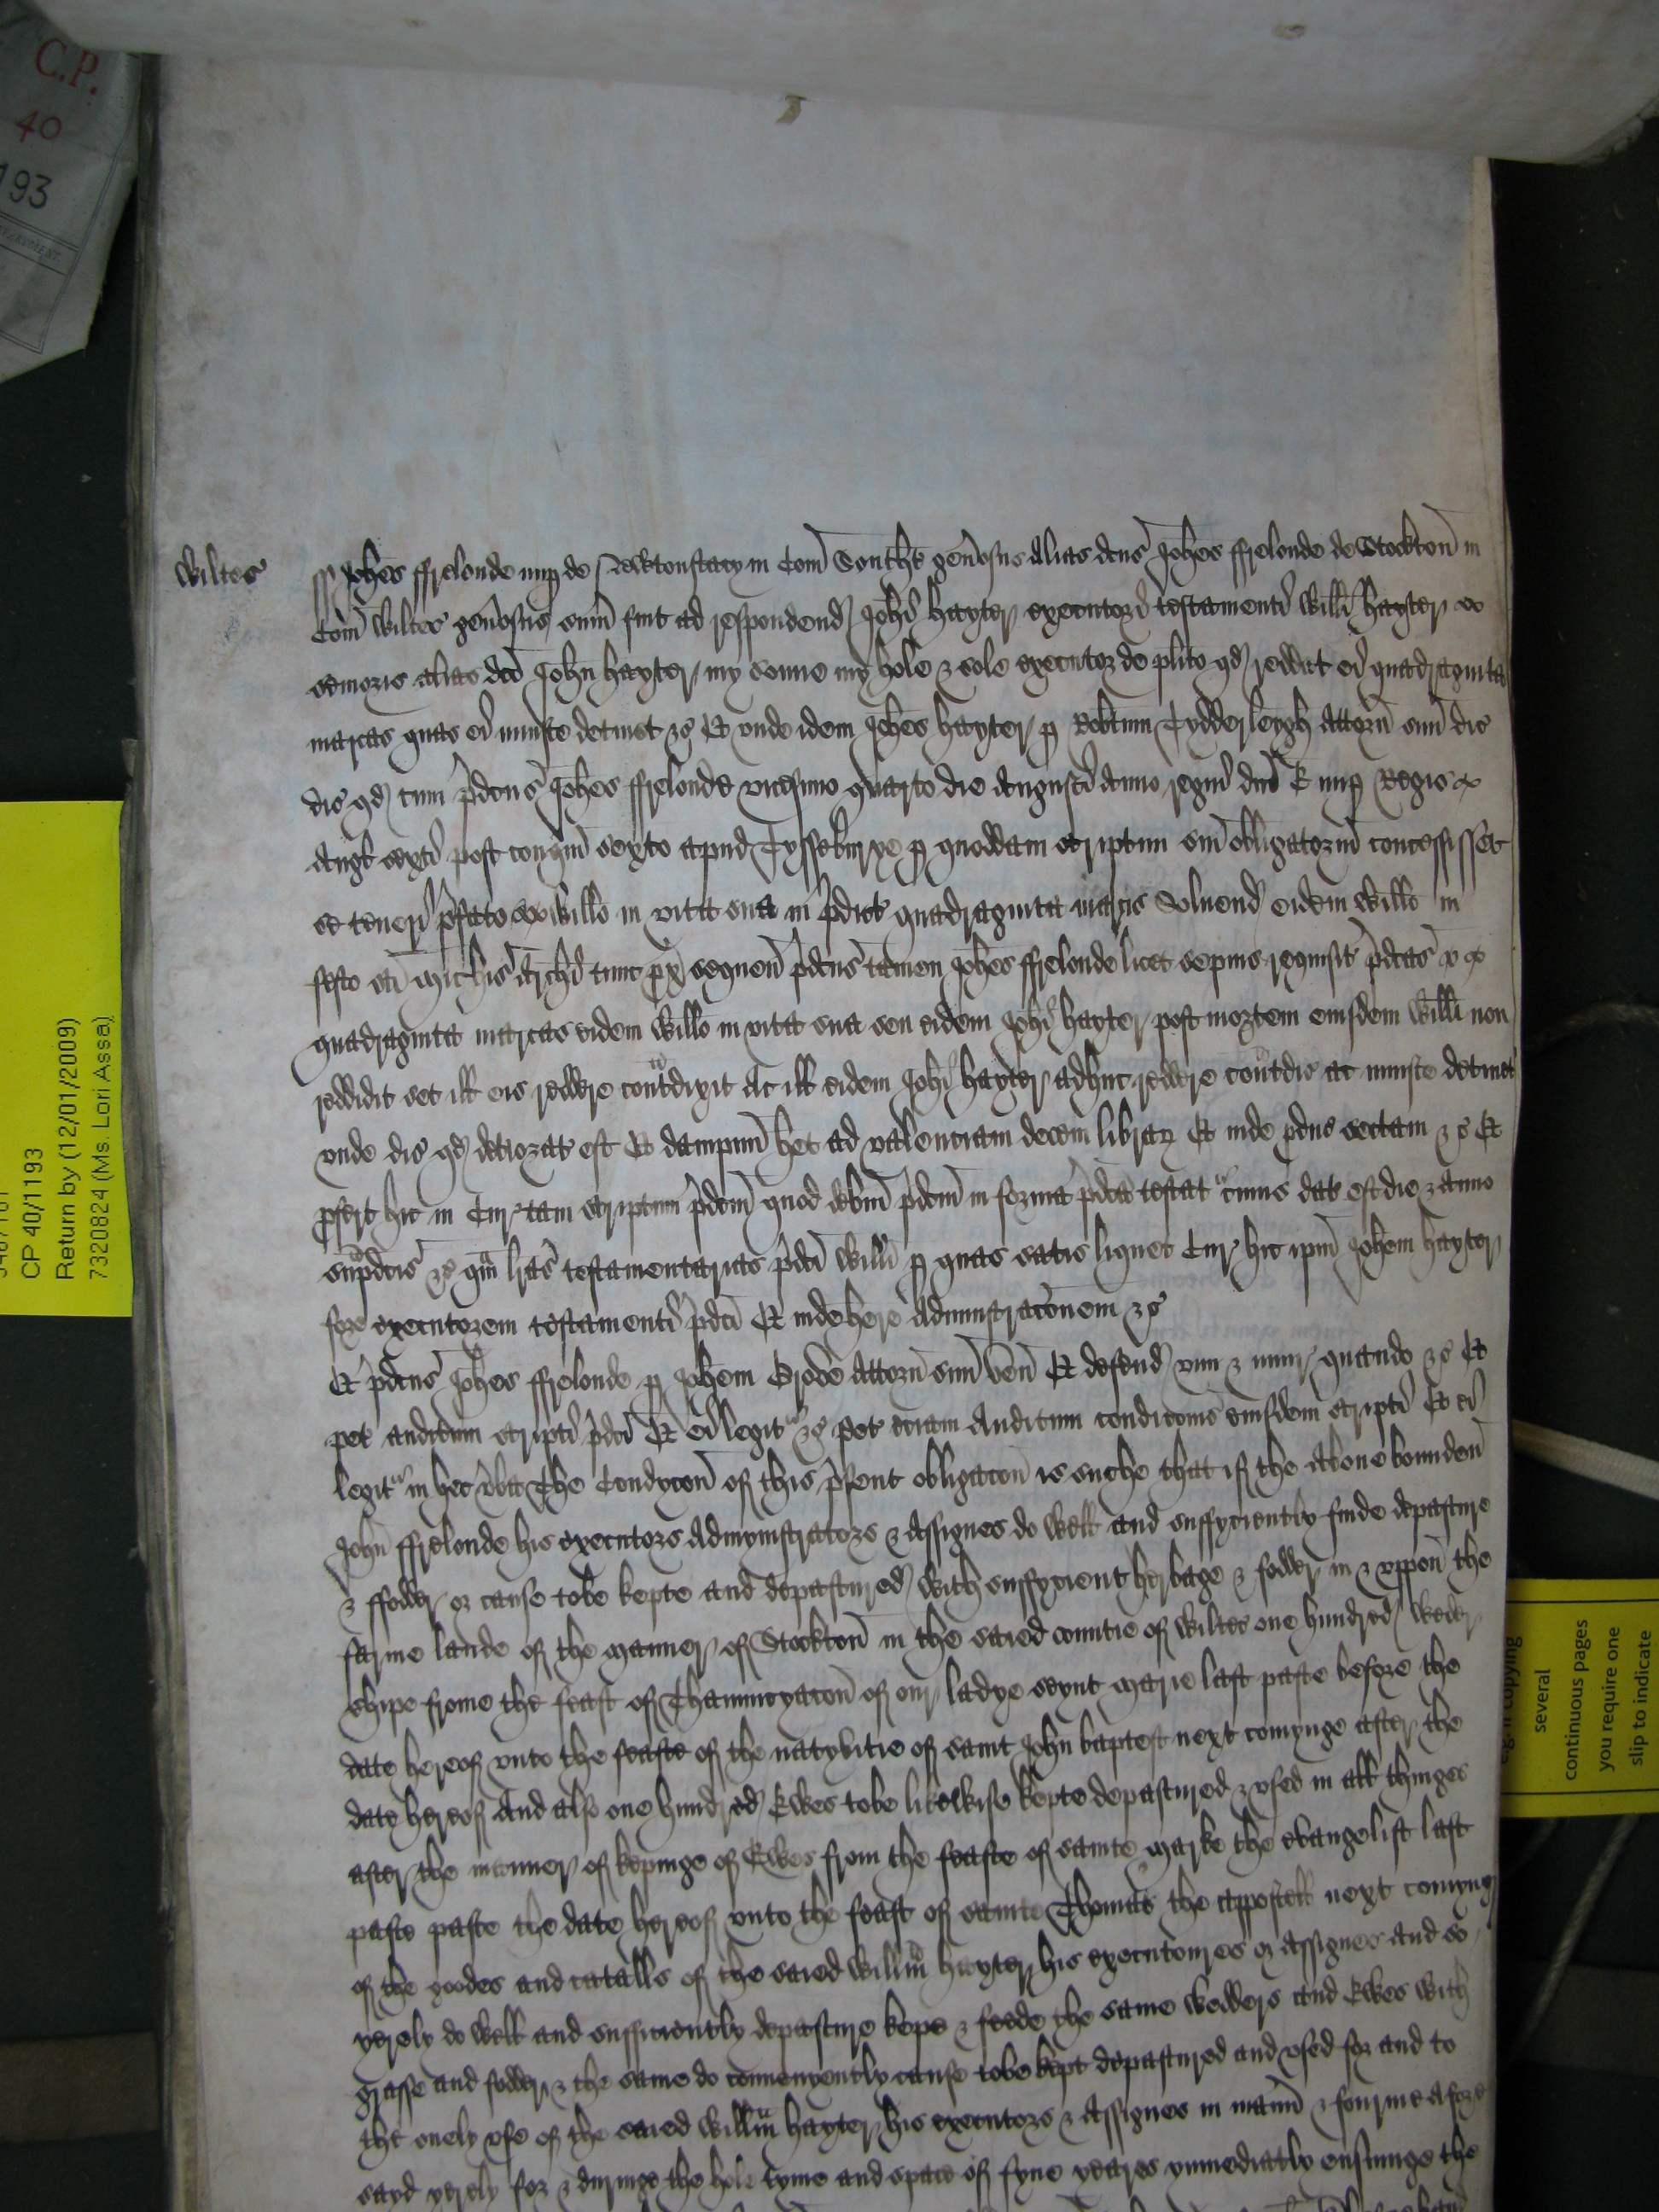 C.P.
40
193
CP 40/1193
Return by (12/01/2009)
7320824 (Ms. Lori Assa)
several
continuous pages
you require one
slip to indicate
Wiltes
Johes ffrelonde nup de in Com Southt genosus alias dcus Johes ffrelonde de Stockton in
Com Wiltes genosus sum fuit ad respondend Johi hayter executori testamenti Willi hayter
senioris alias dcd John hayter my sonne my hole & sole executor de plito qd reddat ei quadraginta
marcas quas ei iniuste detinet &c Et unde idem Johes hayter p Robtum Tydderleygh Attorn suu dic
dic qd cum pdcus Johes ffrelonde vicesimo quarto die Augusti anno regni dni E nup Regis
Angl sexti post conqm sexto apud Tyssebury p quoddam scriptum suu obligatoriu concessisset
se teneri pfato Willo in vita sua in pdict quadraginta marcis Solvend eidem Willo in
festo sci Michis Archi tunc px sequen pdcus tamen Johes ffrelonde licet sepius requisit pdcas
quadraginta marcas eidem Willo in vita sua seu eidem Johi hayter post mortem eiusdem Willi non
reddidit set ill eis reddere contdixit Ac ill eidem Johi hayter adhuc reddere contdic ac iniuste detinet
unde dic qd deteriorat est Et dampnu het ad valenciam decem librar Et inde pduc sectam &c Et
pfert hic in Cur tam scriptum pdcm quod debm pdcm in forma pdca testat cuius dat est die & anno
supdcis &c qm lras testamentarias pdci Willi p quas satis liquet Cur hic ipm Johem hayter
fore executorem testamenti pdci Et inde here Administraconem &c
Et pdcus Johes ffrelonde p Johem Attorn suu ven Et defend vim & iniur quando &c Et
pet auditum scripti pdci Et ei legit &c pet eciam Auditum condicois eiusdem scripti Et ei
legit in hec vba The Condycon of this psent obligacon is suche that if the above bounden
John ffrelonde his executors Admynistrators & Assignes do well and suffyciently finde depasture
& ffodder or cause tobe kepte and depastured with suffycient herbage & fodder in & uppon the
farme lande of the manner of Stockton in the saied countie of Wiltes one hundred wedder
shipe frome the feast of Thannuncyacon of our ladye seynt Marie last paste before the
date hereof unto the feaste of the natyvitie of saint John baptest next comynge after the
date hereof And also one hundred Ewes tobe likewise kepte depastured & used in all thinges
after the manner of kepinge of Ewes from the feaste of sainte Marke the evangelist last
paste paste the date hereof unto the feast of sainte Thomas the appostell next comyng
of the goodes and catalls of the saied Willm hayter his executoures or assignes and so
yerely do well and sufficiently depasture kepe & feede the same wedders and Ewes with
grasse and fodder & the same do convenyently cause tobe kept depastured and used for and to
the onely use of the saied Willm hayter his executors & Assignes in mann & fourme afore
sayd yerely for & duringe the hole tyme and space of fyve yeares ymmediatly ensuinge the